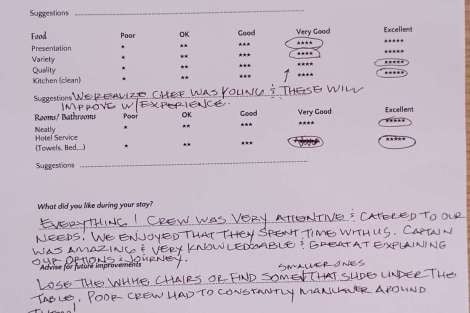 Suggestions
Food Poor OK Good Very Good Excellent
Presentation * ** *** **** *****
Variety * ** *** **** *****
Quality * ** *** **** *****
Kitchen (clean) * ** *** **** *****
Suggestions WE REALIZE CHEF WAS YOUNG & THESE WILL
IMPROVE W/ EXPERIENCE.
Rooms/ Bathrooms Poor OK Good Very Good Excellent
Neatly * ** *** **** *****
Hotel Service
(Towels, Bed...) * ** *** *****
Suggestions
What did you like during your stay?
EVERYTHING! CREW WAS VERY ATTENTIVE & CATERED TO OUR
NEEDS. WE ENJOYED THAT THEY SPENT TIME WITH US. CAPTAIN
WAS AMAZING & VERY KNOWLEDGABLE & GREAT AT EXPLAINING
OUR OPTIONS & JOURNEY.
Advise for future improvements
SMALLER ONES
LOSE THE WHITE CHAIRS OR FIND SOME THAT SLIDE UNDER THE
TABLE. POOR CREW HAD TO CONSTANTLY MANUEVER AROUND